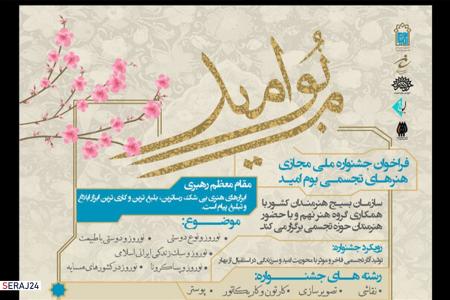 بوم امید
فراخوان جشنواره ملی مجازی
هنرهای تجسمی بوم امید
سازمان بسیج هنرمندان کشور با
همکاری گروه هنر نهم و با حضور
هنرمندان حوزه تجسمی برگزار می کند
رویکرد جشنواره:
تولید آثار تجسمی فاخر و موثر با محوریت امید و سرزندگی در استقبال از بهار
رشته های جشنواره:
• نقاشی • تصویرسازی • کارتون و کاریکاتور • پوستر
مقام معظم رهبری
ابزارهای هنری بی شک، رساترین، بلیغ ترین و کاری ترین ابزار ابلاغ
و تبلیغ پیام است.
موضوع:
• نوروز و نوع دوستی • نوروز و دوستی با طبیعت
• نوروز و سبک زندگی ایرانی اسلامی
• نوروز و پساکرونا • نوروز در کشورهای همسایه
SERAJ24